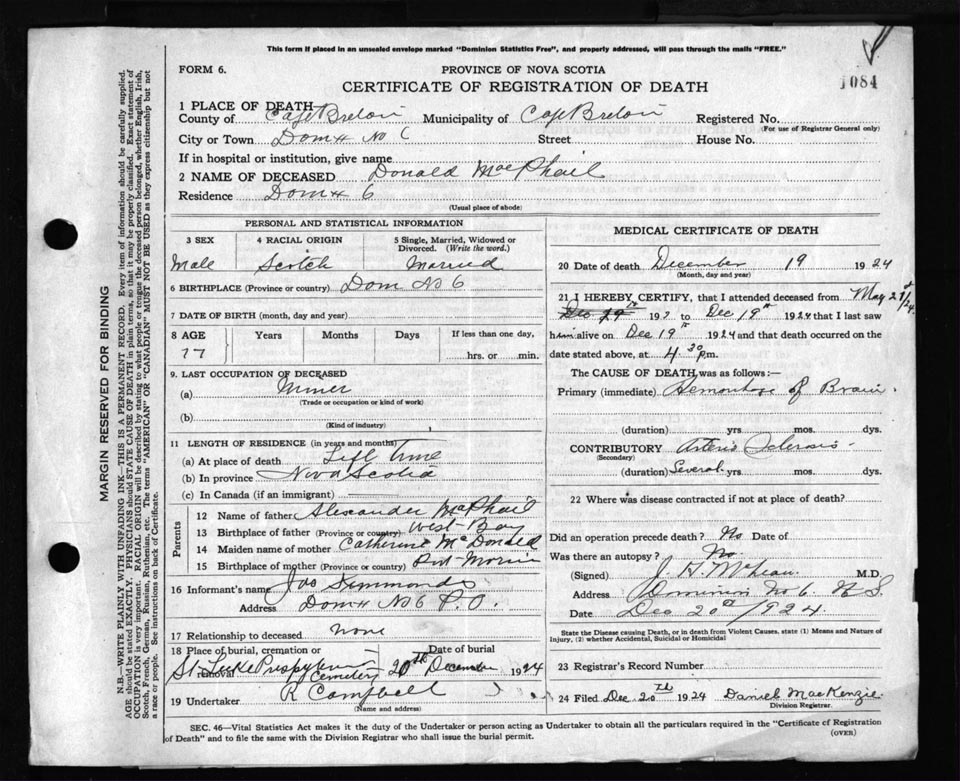 This form if placed in an unsealed envelope marked "Dominion Statistics Free", and properly addressed, will pass through the mails "FREE."
FORM 6.
PROVINCE OF NOVA SCOTIA
CERTIFICATE OF REGISTRATION OF DEATH
1084
1 PLACE OF DEATH
County of Cape Breton Municipality of Cape Breton Registered No.
(For use of Registrar General only)
City or Town Dom No 6 Street House No.
If in hospital or institution, give name
2 NAME OF DECEASED Donald MacPhail
Residence Dom 6
(Usual place of abode)
PERSONAL AND STATISTICAL INFORMATION
3 SEX 4 RACIAL ORIGIN 5 Single, Married, Widowed or Divorced. (Write the word.)
Male Scotch Married
6 BIRTHPLACE (Province or country) Dom No 6
7 DATE OF BIRTH (month, day and year)
8 AGE Years Months Days If less than one day,
77 hrs. or min.
9. LAST OCCUPATION OF DECEASED
(a) Miner
(Trade or occupation or kind of work)
(b)
(Kind of industry)
11 LENGTH OF RESIDENCE (in years and months)
(a) At place of death Life Time
(b) In province Nova Scotia
(c) In Canada (if an immigrant)
Parents
12 Name of father Alexander McPhail
13 Birthplace of father (Province or country) West Bay
14 Maiden name of mother Catherine McDonald
15 Birthplace of mother (Province or country) Port Morien
16 Informant's name Jas Simmonds
Address Dom No 6 P.O.
17 Relationship to deceased none
18 Place of burial, cremation or removal Date of burial
St Lukes Presbyterian Cemetery 20th December 1924
19 Undertaker R Campbell
(Name and address)
MEDICAL CERTIFICATE OF DEATH
20 Date of death December 19 1924
(Month, day and year)
21 I HEREBY CERTIFY, that I attended deceased from May 21st/24
192 to Dec 19th 1924 that I last saw
him alive on Dec 19th 1924 and that death occurred on the
date stated above, at 4.30 p.m.
The CAUSE OF DEATH was as follows:—
Primary (immediate) Hemorrhage of Brain
(duration) yrs mos. dys.
CONTRIBUTORY Arterio Sclerosis
(Secondary)
(duration) Several yrs. mos. dys.
22 Where was disease contracted if not at place of death?
Did an operation precede death? No Date of
Was there an autopsy? No
(Signed) J. A. McLean M.D.
Address Dominion No 6. N.S.
Date Dec 20th/1924
State the Disease causing Death, or in death from Violent Causes, state (1) Means and Nature of Injury, (2) whether Accidental, Suicidal or Homicidal
23 Registrar's Record Number
24 Filed Dec 20th 1924 Daniel MacKenzie
Division Registrar.
SEC. 46—Vital Statistics Act makes it the duty of the Undertaker or person acting as Undertaker to obtain all the particulars required in the "Certificate of Registration
of Death" and to file the same with the Division Registrar who shall issue the burial permit.
(OVER)
MARGIN RESERVED FOR BINDING
N.B.—WRITE PLAINLY WITH UNFADING INK—THIS IS A PERMANENT RECORD. Every item of information should be carefully supplied.
AGE should be stated EXACTLY. PHYSICIANS should STATE CAUSE OF DEATH in plain terms, so that it may be properly classified. Exact statement of
OCCUPATION is very important. RACIAL ORIGIN will be described by stating to what people or tongue the deceased person belonged, whether English, Irish,
Scotch, French, German, Russian, Ruthenian, etc. The terms "AMERICAN" OR "CANADIAN" MUST NOT BE USED as they express citizenship but not
a race or people. See instructions on back of Certificate.